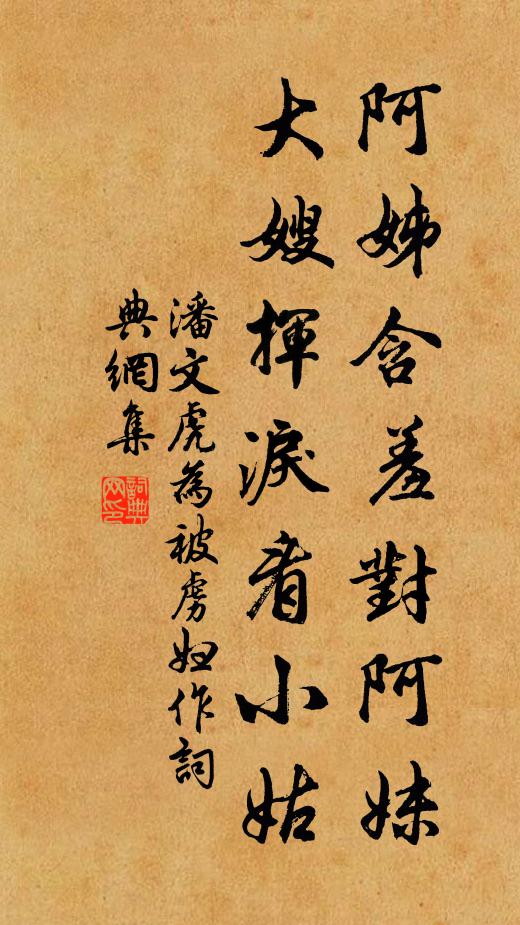 阿姊含羞對阿妹
大嫂揮淚看小姑
潘文虎為被虜婦作詞
典網集
詞典
网印